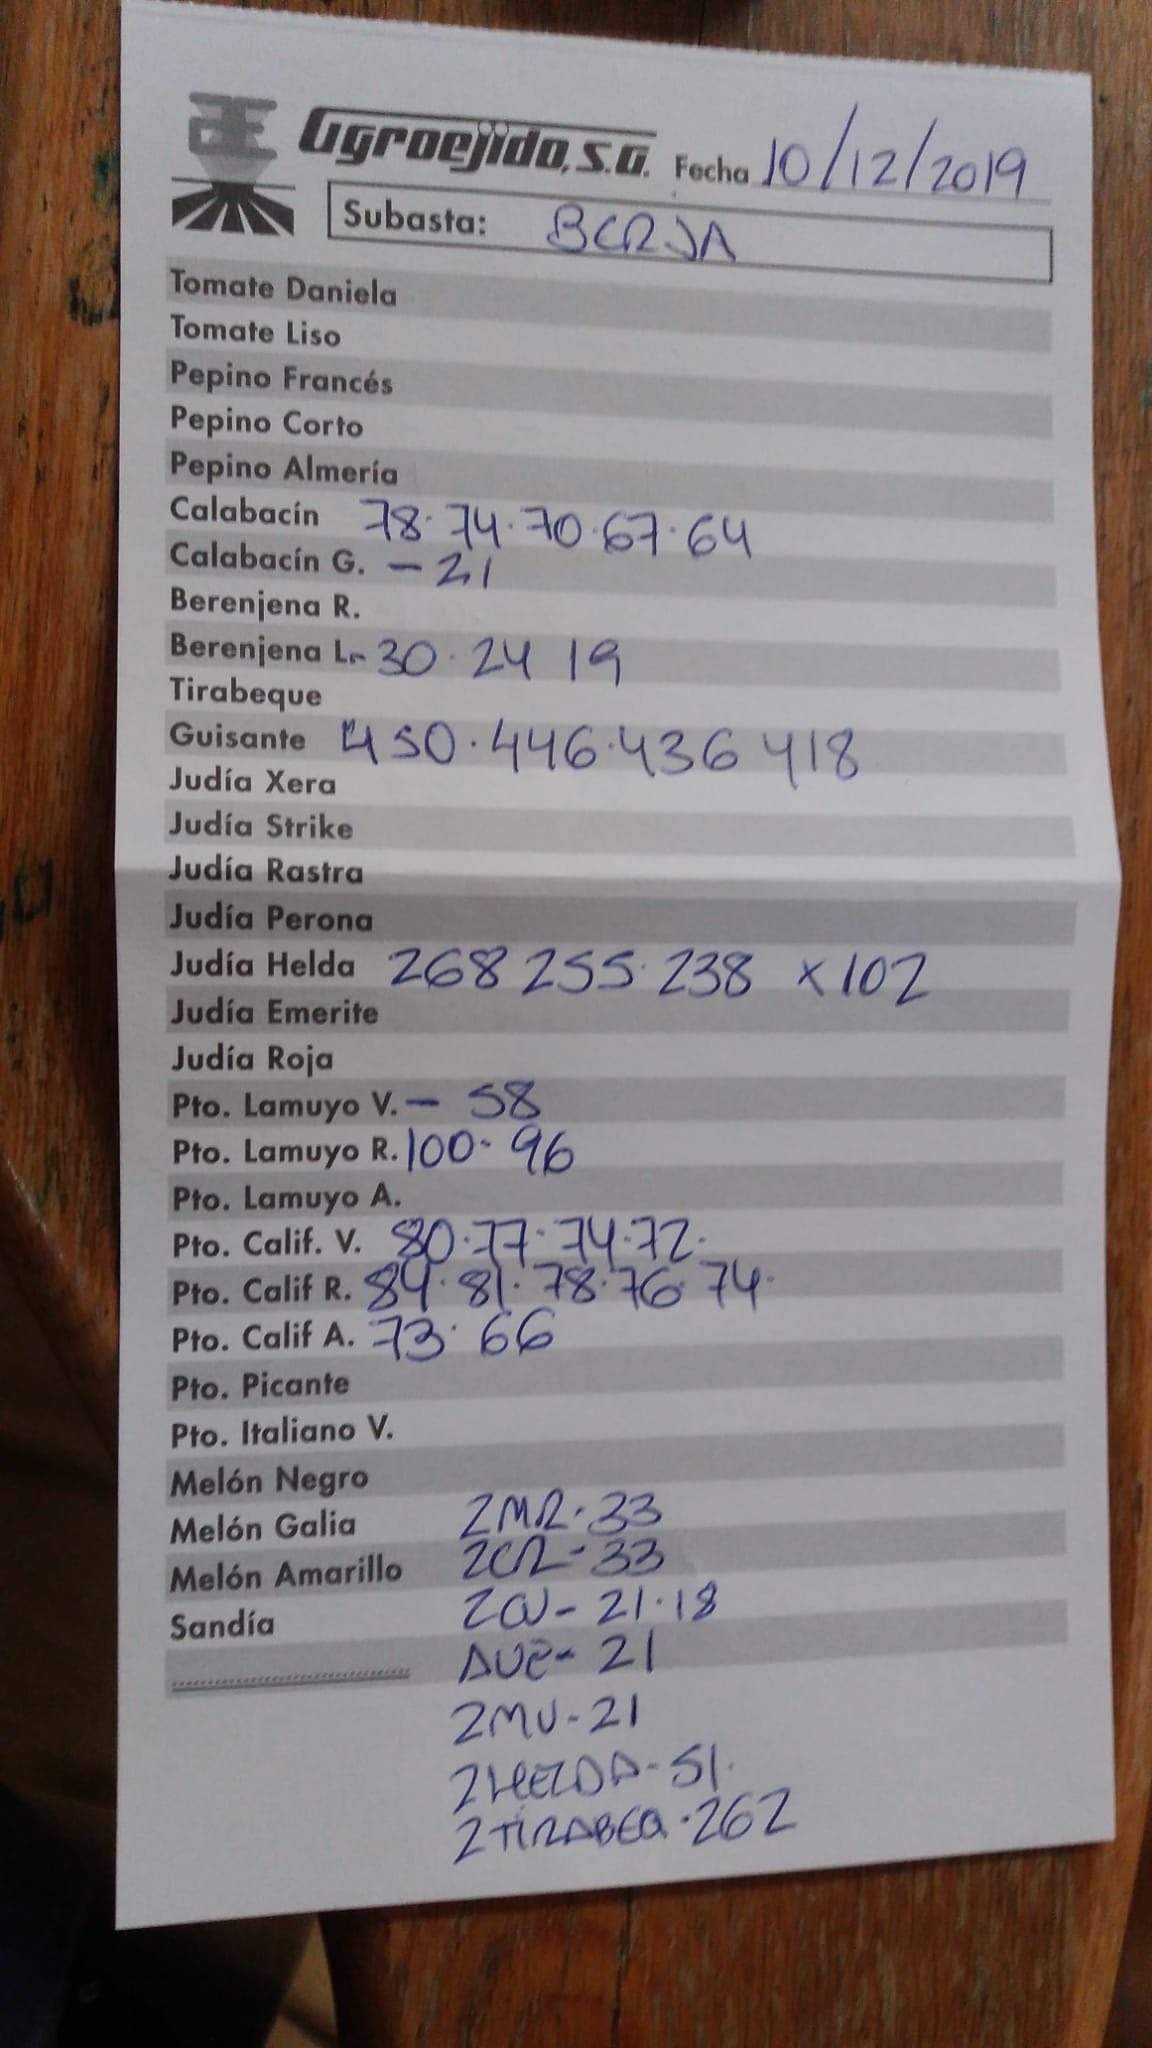 AE Agroejido, S.A. Fecha 10/12/2019
Subasta: BERJA
Tomate Daniela
Tomate Liso
Pepino Francés
Pepino Corto
Pepino Almería
Calabacín 78·74·70·67·64
Calabacín G. - 21
Berenjena R.
Berenjena L. - 30·24 19
Tirabeque
Guisante 450·446·436 418
Judía Xera
Judía Strike
Judía Rastra
Judía Perona
Judía Helda 268 255·238 x102
Judía Emerite
Judía Roja
Pto. Lamuyo V. - 58
Pto. Lamuyo R. 100·96
Pto. Lamuyo A.
Pto. Calif. V. 80·77·74·72·
Pto. Calif R. 84·81·78·76·74·
Pto. Calif A. 73·66
Pto. Picante
Pto. Italiano V.
Melón Negro
Melón Galia 2MR·33
Melón Amarillo 2CR-33
Sandía 2CV-21·18
AVE-21
2MV-21
2HELDA-51·
2TIRABEQ·262